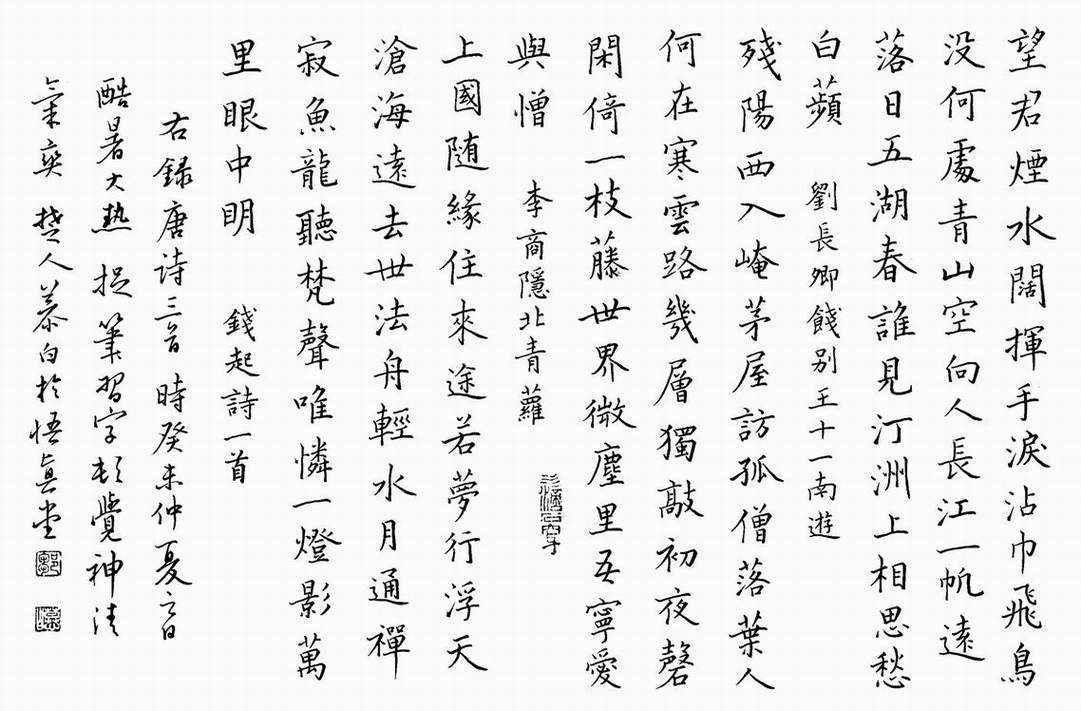 望君煙水闊揮手淚沾巾飛鳥
没何處青山空向人長江一帆遠
落日五湖春誰見汀洲上相思愁
白蘋 劉長卿餞别王十一南遊
殘陽西入崦茅屋訪孤僧落葉人
何在寒雲路幾層獨敲初夜磬
閑倚一枝藤世界微塵里吾寧愛
與憎 李商隱北青蘿
上國随緣住來途若夢行浮天
滄海遠去世法舟輕水月通禪
寂魚龍聽梵聲唯憐一燈影萬
里眼中明 錢起詩一首
右録唐诗三首 時癸未仲夏日
酷暑大热 捉筆習字頓覺神清
氣爽 楚人慕白於悟真堂